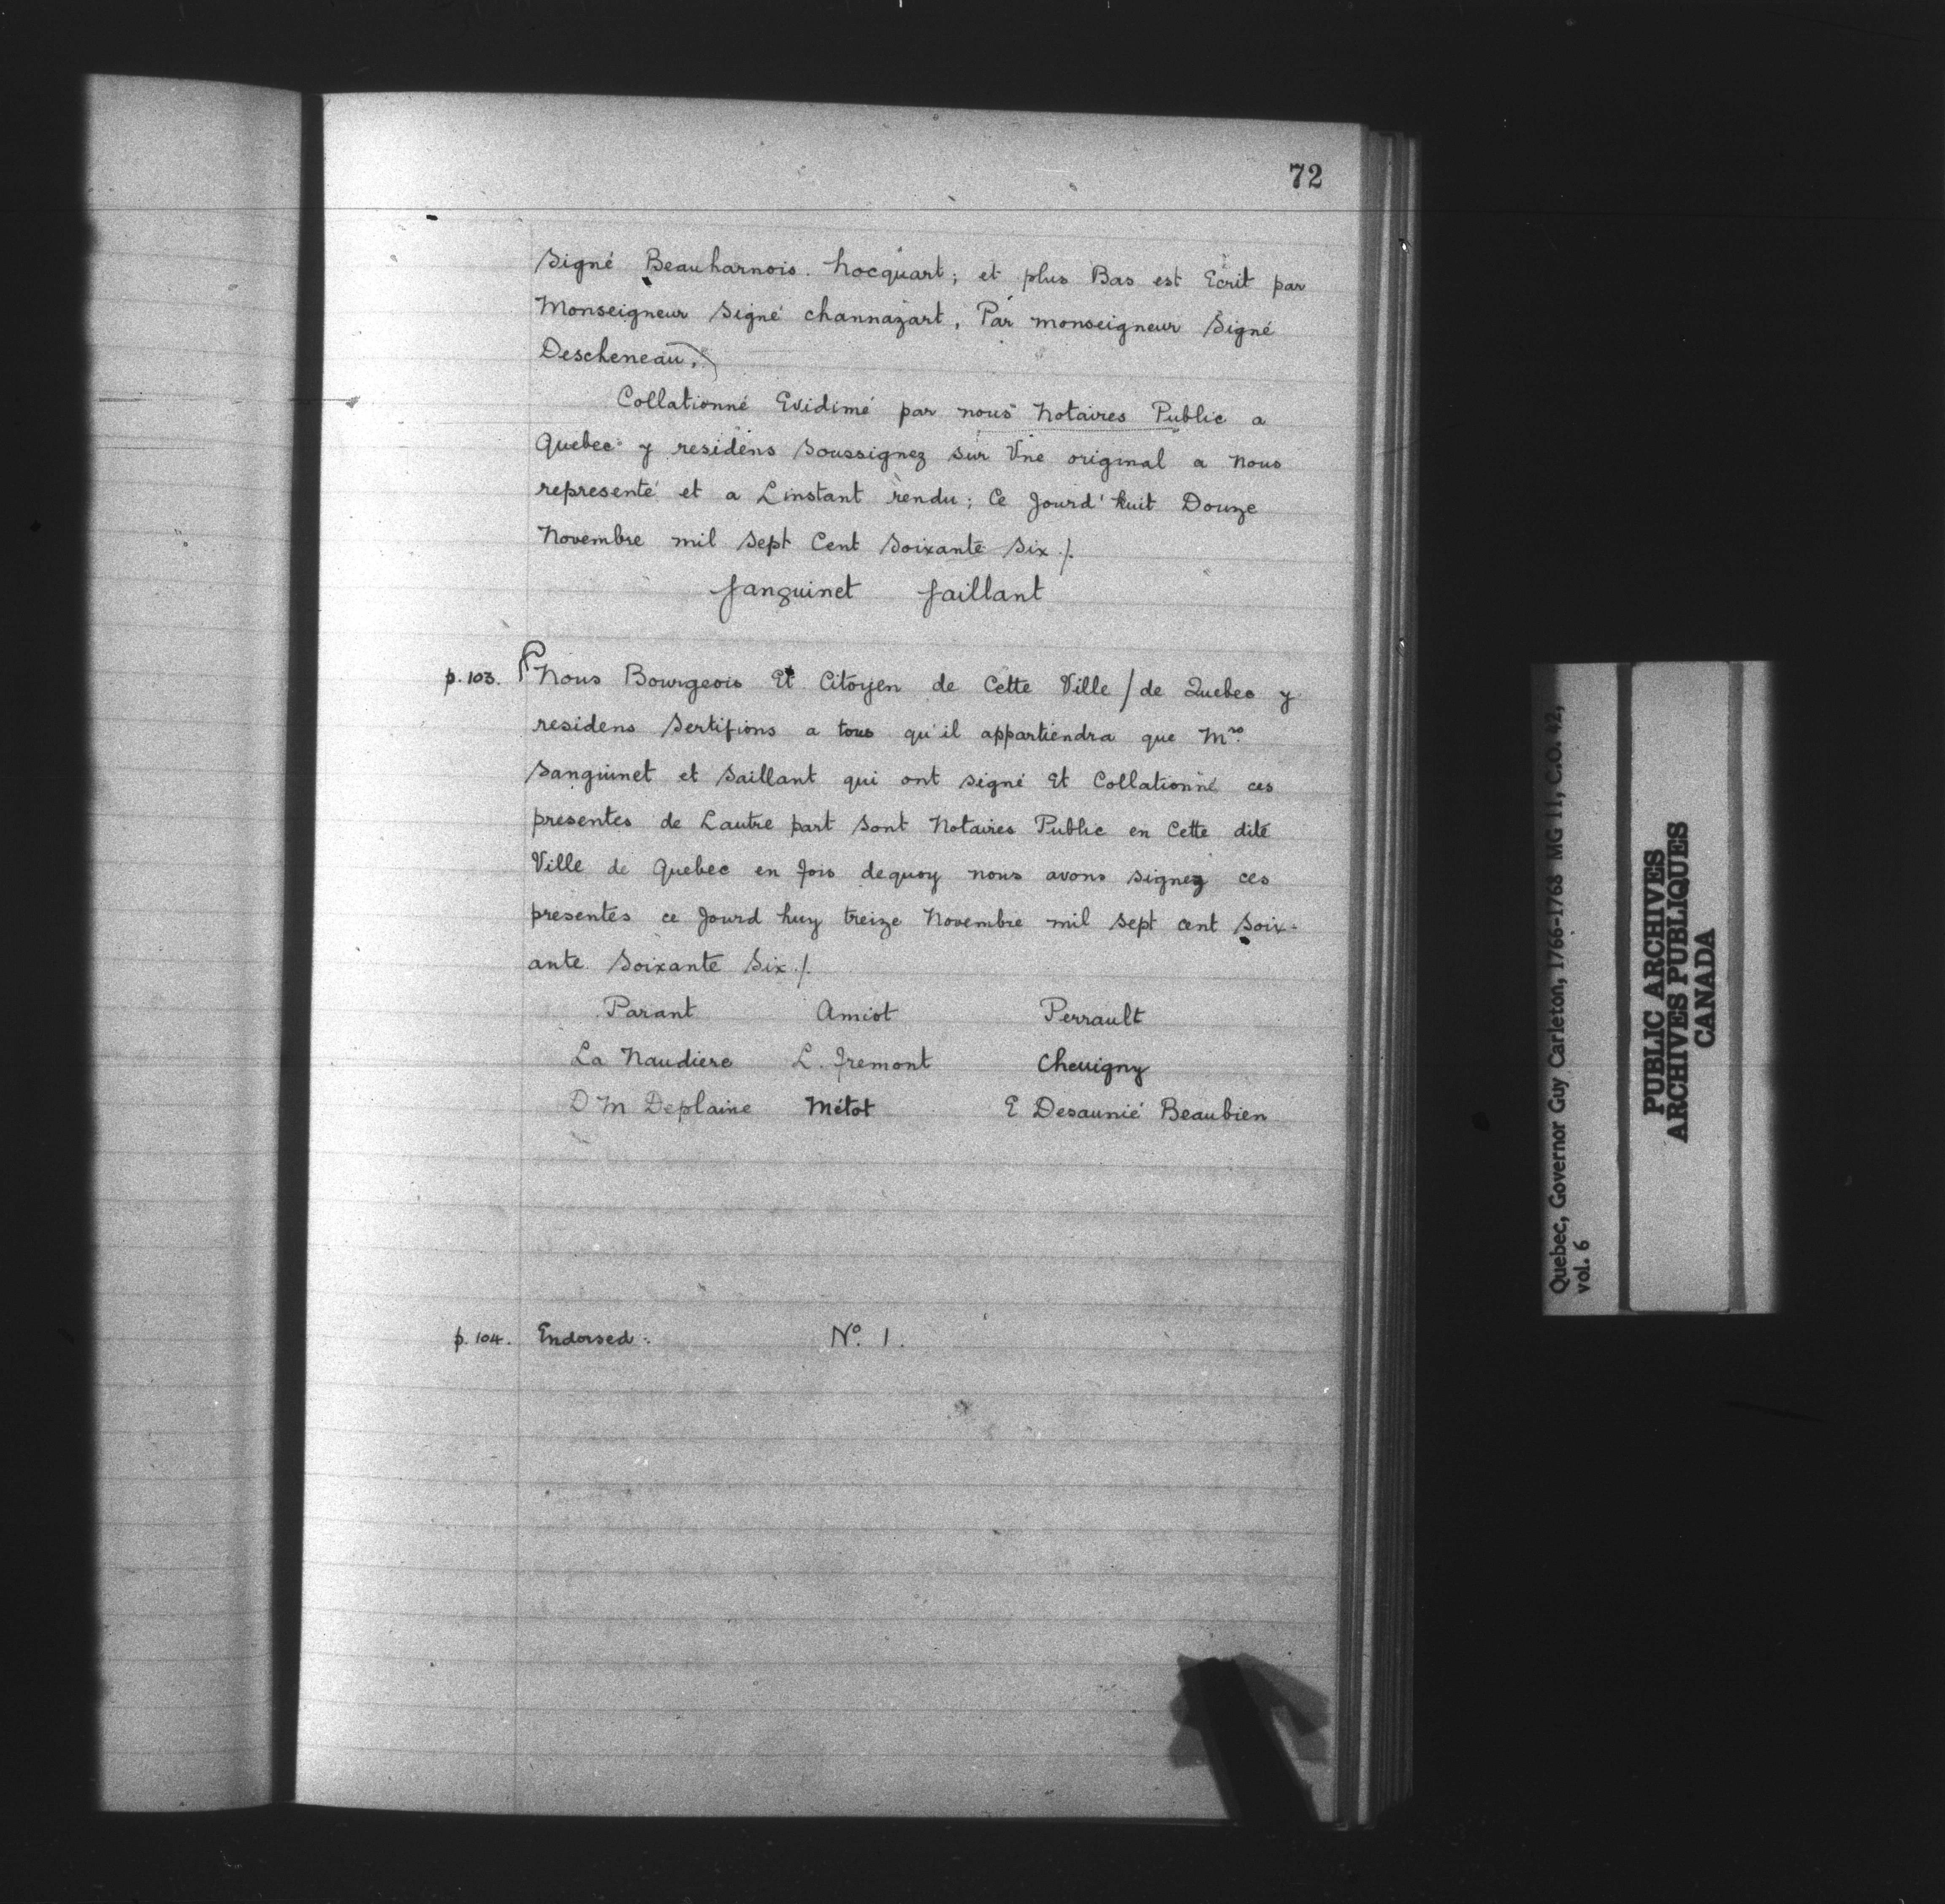 72
Signé Beauharnois. hocquart; et plus Bas est Ecrit par
Monseigneur Signé channazart, Par monseigneur Signé
Descheneau.
Collationné Evidimé par nous Notaires Public a
Quebec y residens Soussignez sur Une original a Nous
representé et a Linstant rendu; Ce Jourd'huit Douze
Novembre mil Sept Cent Soixante Six./.
Sanguinet Saillant
p. 103. Nous Bourgeois Et Citoyen de Cette Ville / de Quebec y
residens Sertifions a tous qu'il appartiendra que Mrs.
Sanguinet et Saillant qui ont signé Et Collationné ces
presentes de Lautre part Sont Notaires Public en Cette dite
Ville de Quebec en fois dequoy nous avons signez ces
presentes ce Jourd huy treize Novembre mil sept cent Soix-
ante Soixante Six./.
Parant Amiot Perrault
La Naudiere L. fremont Cheuigny
D M Deplaine Métot E Desaunié Beaubien
p. 104. Endorsed: No. 1.
Quebec, Governor Guy Carleton, 1766-1768 MG 11, C.O. 42,
vol. 6
PUBLIC ARCHIVES
ARCHIVES PUBLIQUES
CANADA